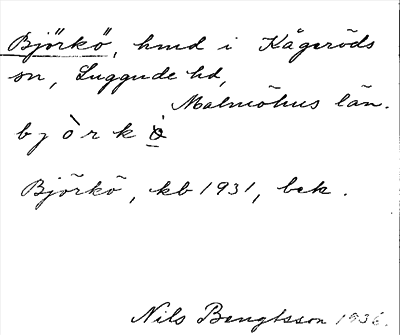 Björkö, hmd i Kågeröds
sn, Luggude hd,
Malmöhus län.
b j ò r k ò
Björkö, kb 1931, bek.
Nils Bengtsson 1936.